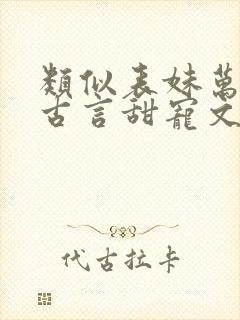 類似表妹萬
古言甜寵文
代古拉卡